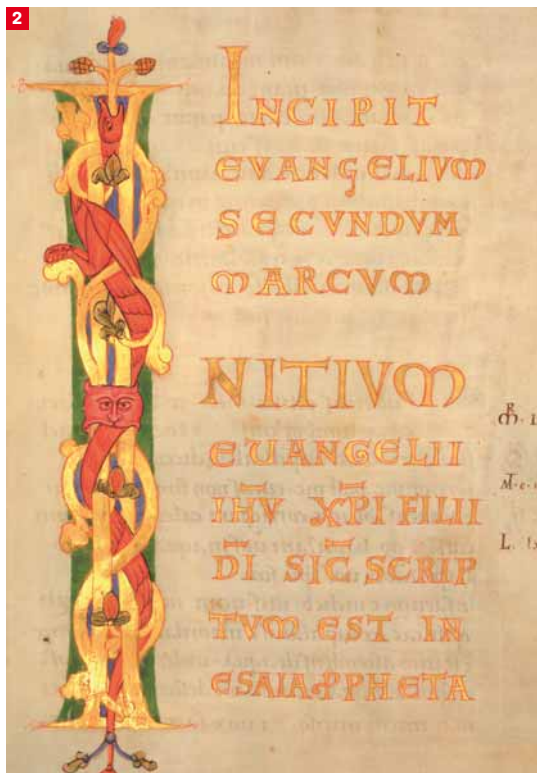 2
INCIPIT
EVANGELIVM
SECVNDVM
MARCVM
NITIVM
EUANGELII
IHV XPI FILII
DI SIC SCRIP
TVM EST IN
ESAIA PPHETA
L.